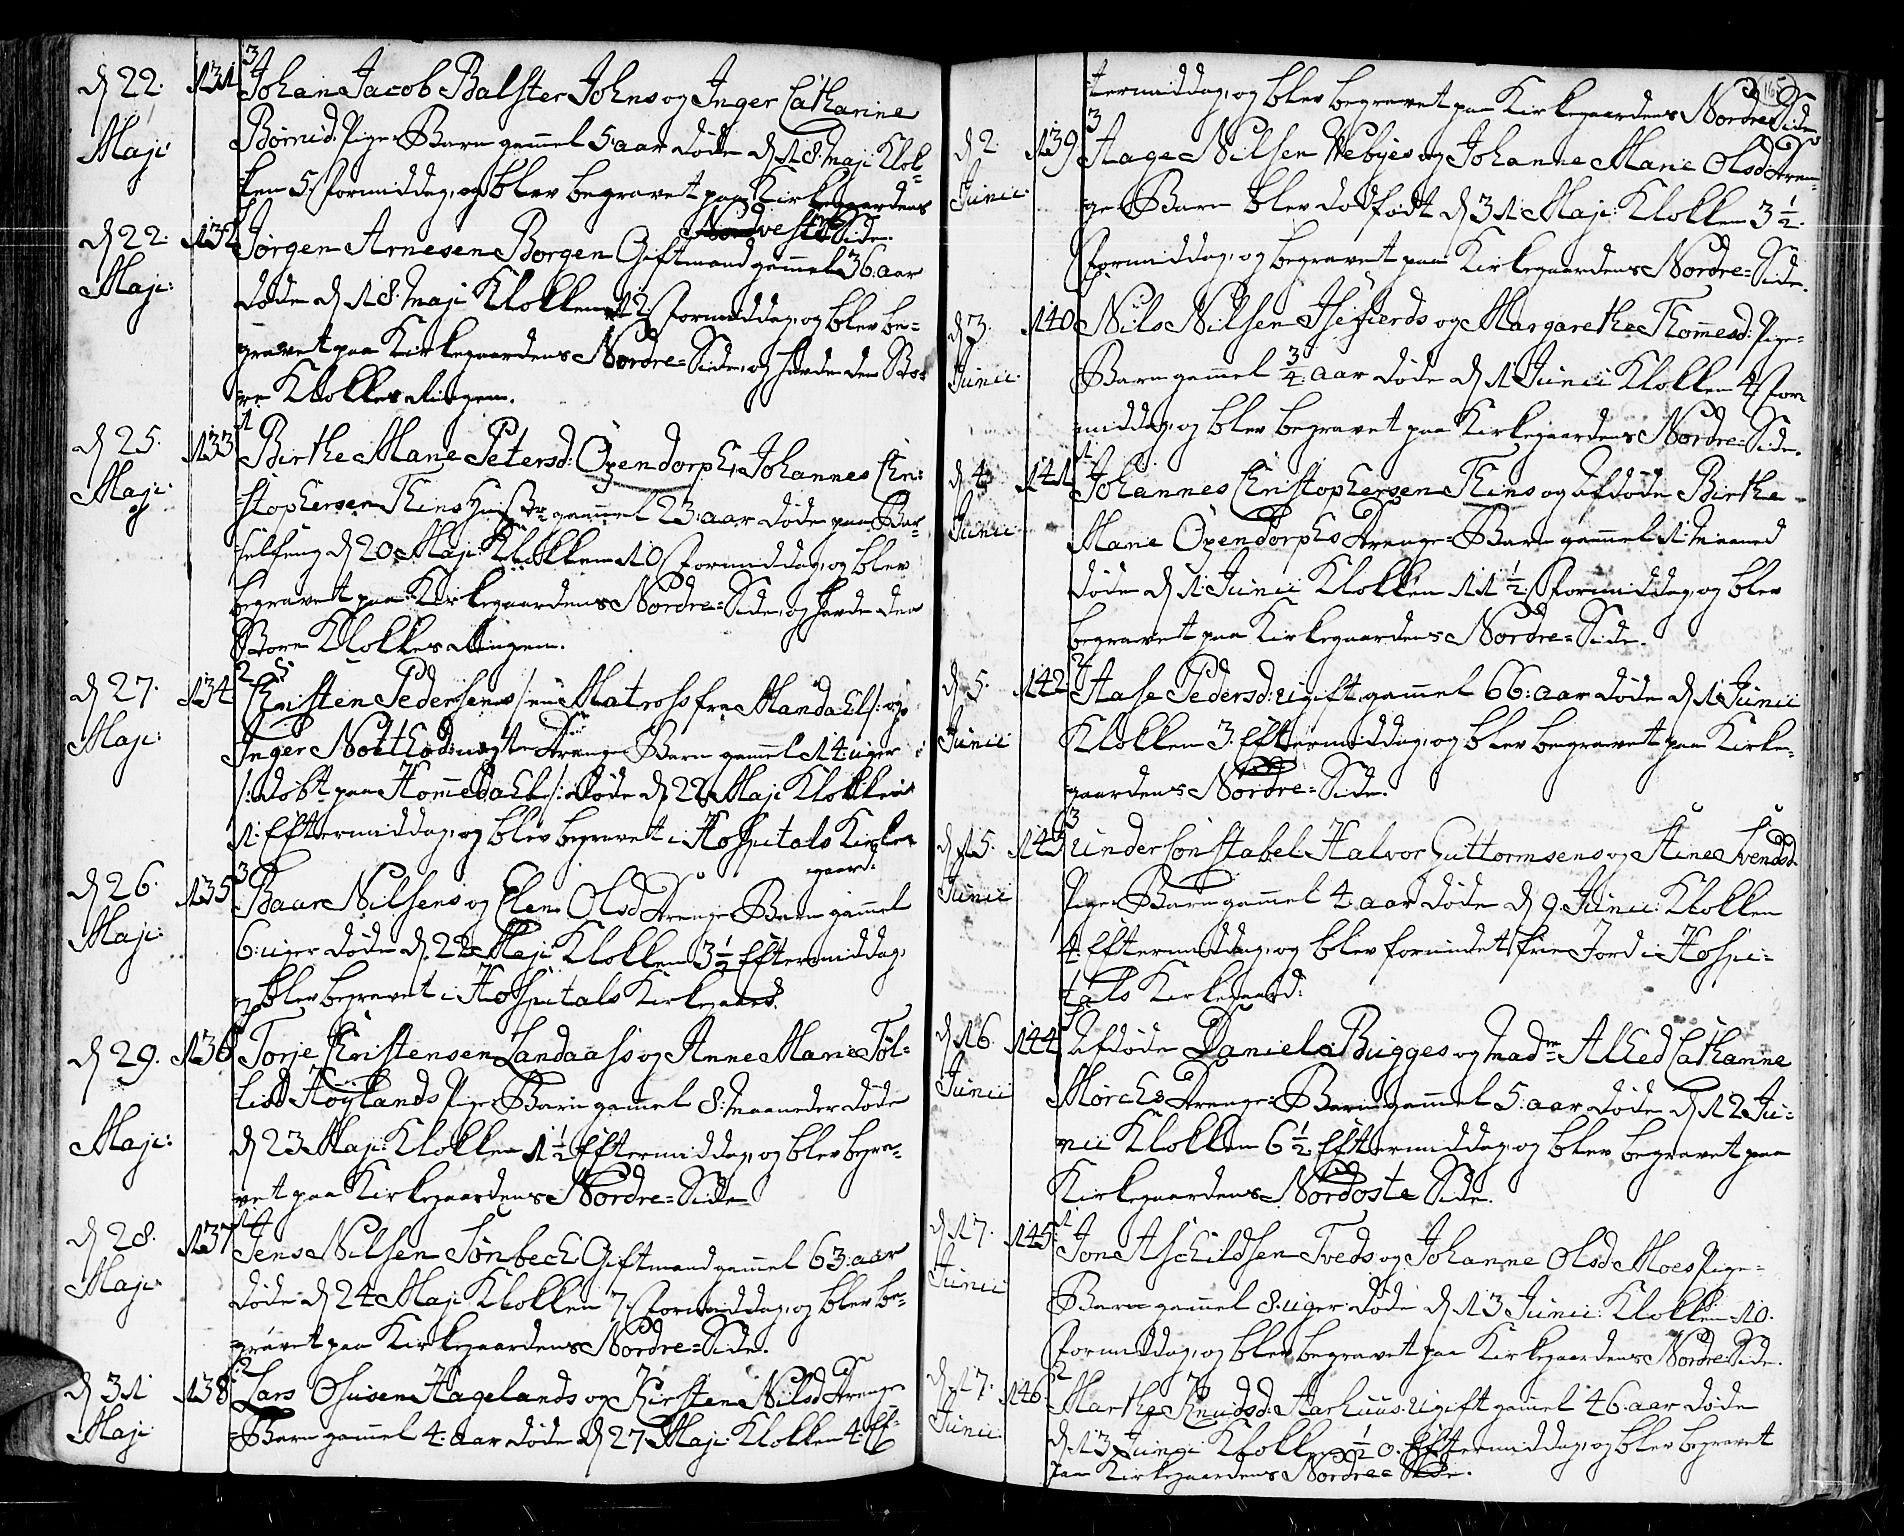 d 22. 131 3 Johan Jacob Balster Johns og Inger Catharine
Maji Børnid: Pige-Barn gamel 5: aar døde d 18: Maji Klok-
ken 5 formiddag, og blev begravet paa Kirkegaardens
Nordveste Side.
d 22: 132 Jørgen Arnesen Borgen Giftmand gamel 36: aar
Maji: døde d 18: Maji Klokken 12 formiddag, og blev be-
gravet paa Kirkegaardens Nordre-Side, og havde den Sto-
re Klokkes Ringen.
d 25. 133 1 Birthe Marie Petersd: Oxendorph, Johannes Chri-
Maji: stophersen Thins Hustr: gamel 23: aar døde paa Bar-
selseng d 20 Maji Klokken 10 formiddag, og blev
begravet paa Kirkegaardens Nordre-Side, og havde den
Store Klokkes Ringen.
d 27. 134 2 Christen Pedersens /: en Matross fra Mandahl :/ og
Maji: Inger Notthod: uægte Drenge Barn gamel 14: uger
/: døbt paa Hommedahl :/ døde d 22 Maji Klokken
1: Eftermiddag, og blev begravet i Hospitals Kirke-
gaard:
d 26. 135 3 Baar Nilsens og Elen Olsd Drenge Barn gamel
Maji: 6: uger døde d. 22 Maji Klokken 3 1/2 Eftermiddag,
og blev begravet i Hospitals Kirkegaard.
d 29. 136 Torje Christensen Landaas og Anne Marie Tøl-
lisd Høylands Pige Barn gamel 8: Maaneder døde
Maji: d 23 Maji: Klokken 1 1/2 Eftermiddag, og blev begra-
vet paa Kirkegaardens Nordre-Side
d 28. 137 1 Jens Nilsen Sønbech Giftmand gamel 63: aar
Maji: døde d 24 Maji Klokken 7 formiddag, og blev be-
gravet paa Kirkegaardens Nordre-Side.
d 31 138 2 Lars Osuisen Hagelands og Kirsten Nilsd Drenge
Maji Barn gamel 4: aar døde d 27 Maji: Klokken 4: Ef-
termiddag, og blev begravet paa Kirkegaardens Nordre Side
d 2. 139 3 Aage Nilsen Vebyes og Johanne Marie Olsd Dren-
Junii ge Barn blev dødfødt d 31 Maji: Klokken 3 1/2
formiddag, og begravet paa Kirkegaardens Nordre-Side.
d 3. 140 Nils Nilsen Isefierds og Margarethe Thomesd: Pige-
Junii: Barn gamel 3/4: aar døde d 1 Junii Klokken 4 for
middag, og blev begravet paa Kirkegaardens Nordre-Side.
d 4: 141 1 Johannes Christophersen Thins og Afdøde Birthe
Junii Marie Oxendorphs Drenge-Barn gamel 1: Maaned
døde d 1 Junii Klokken 11 1/2 formiddag, og blev
begravet paa Kirkegaardens Nordre-Side.
d 5. 142 2 Aase Pedersd: ugift, gamel 66: aar døde d 1 Junii
Junii Klokken 3. Eftermiddag, og blev begravet paa Kirke-
gaardens Nordre-Side.
d 15. 143 3 underConstabel Halvor Guttormsens og Stine Svendsd
Junii Pige Barn gamel 4: aar døde d 9 Junii: Klokken
4 Eftermiddag, og blev forundet frie Jord i Hospi-
tals Kirkegaard:
d 16. 144 Afdøde Daniel Bugges og Madm Alhed Catharine
Junii Mørchs Drenge-Barn gamel 5: aar døde d 12 Ju-
nii Klokken 6 1/2 Eftermiddag, og blev begravet paa
Kirkegaardens Nordoste Side.
d 17. 145 1 Jon Aschildsen Tveds og Johanne Olsd Moes Pige-
Junii Barn gamel 8: uger døde d 13 Junii: Klokken 10.
formiddag, og blev begravet paa Kirkegaardens Nordre Side.
d 17. 146 2 Marthe Knudsd: Aarhuus ugift gamel 46: aar døde
Junii d 13 Junii Klokken 1/2 0. Eftermiddag, og blev begravet
paa Kirkegaardens Nordre Side.